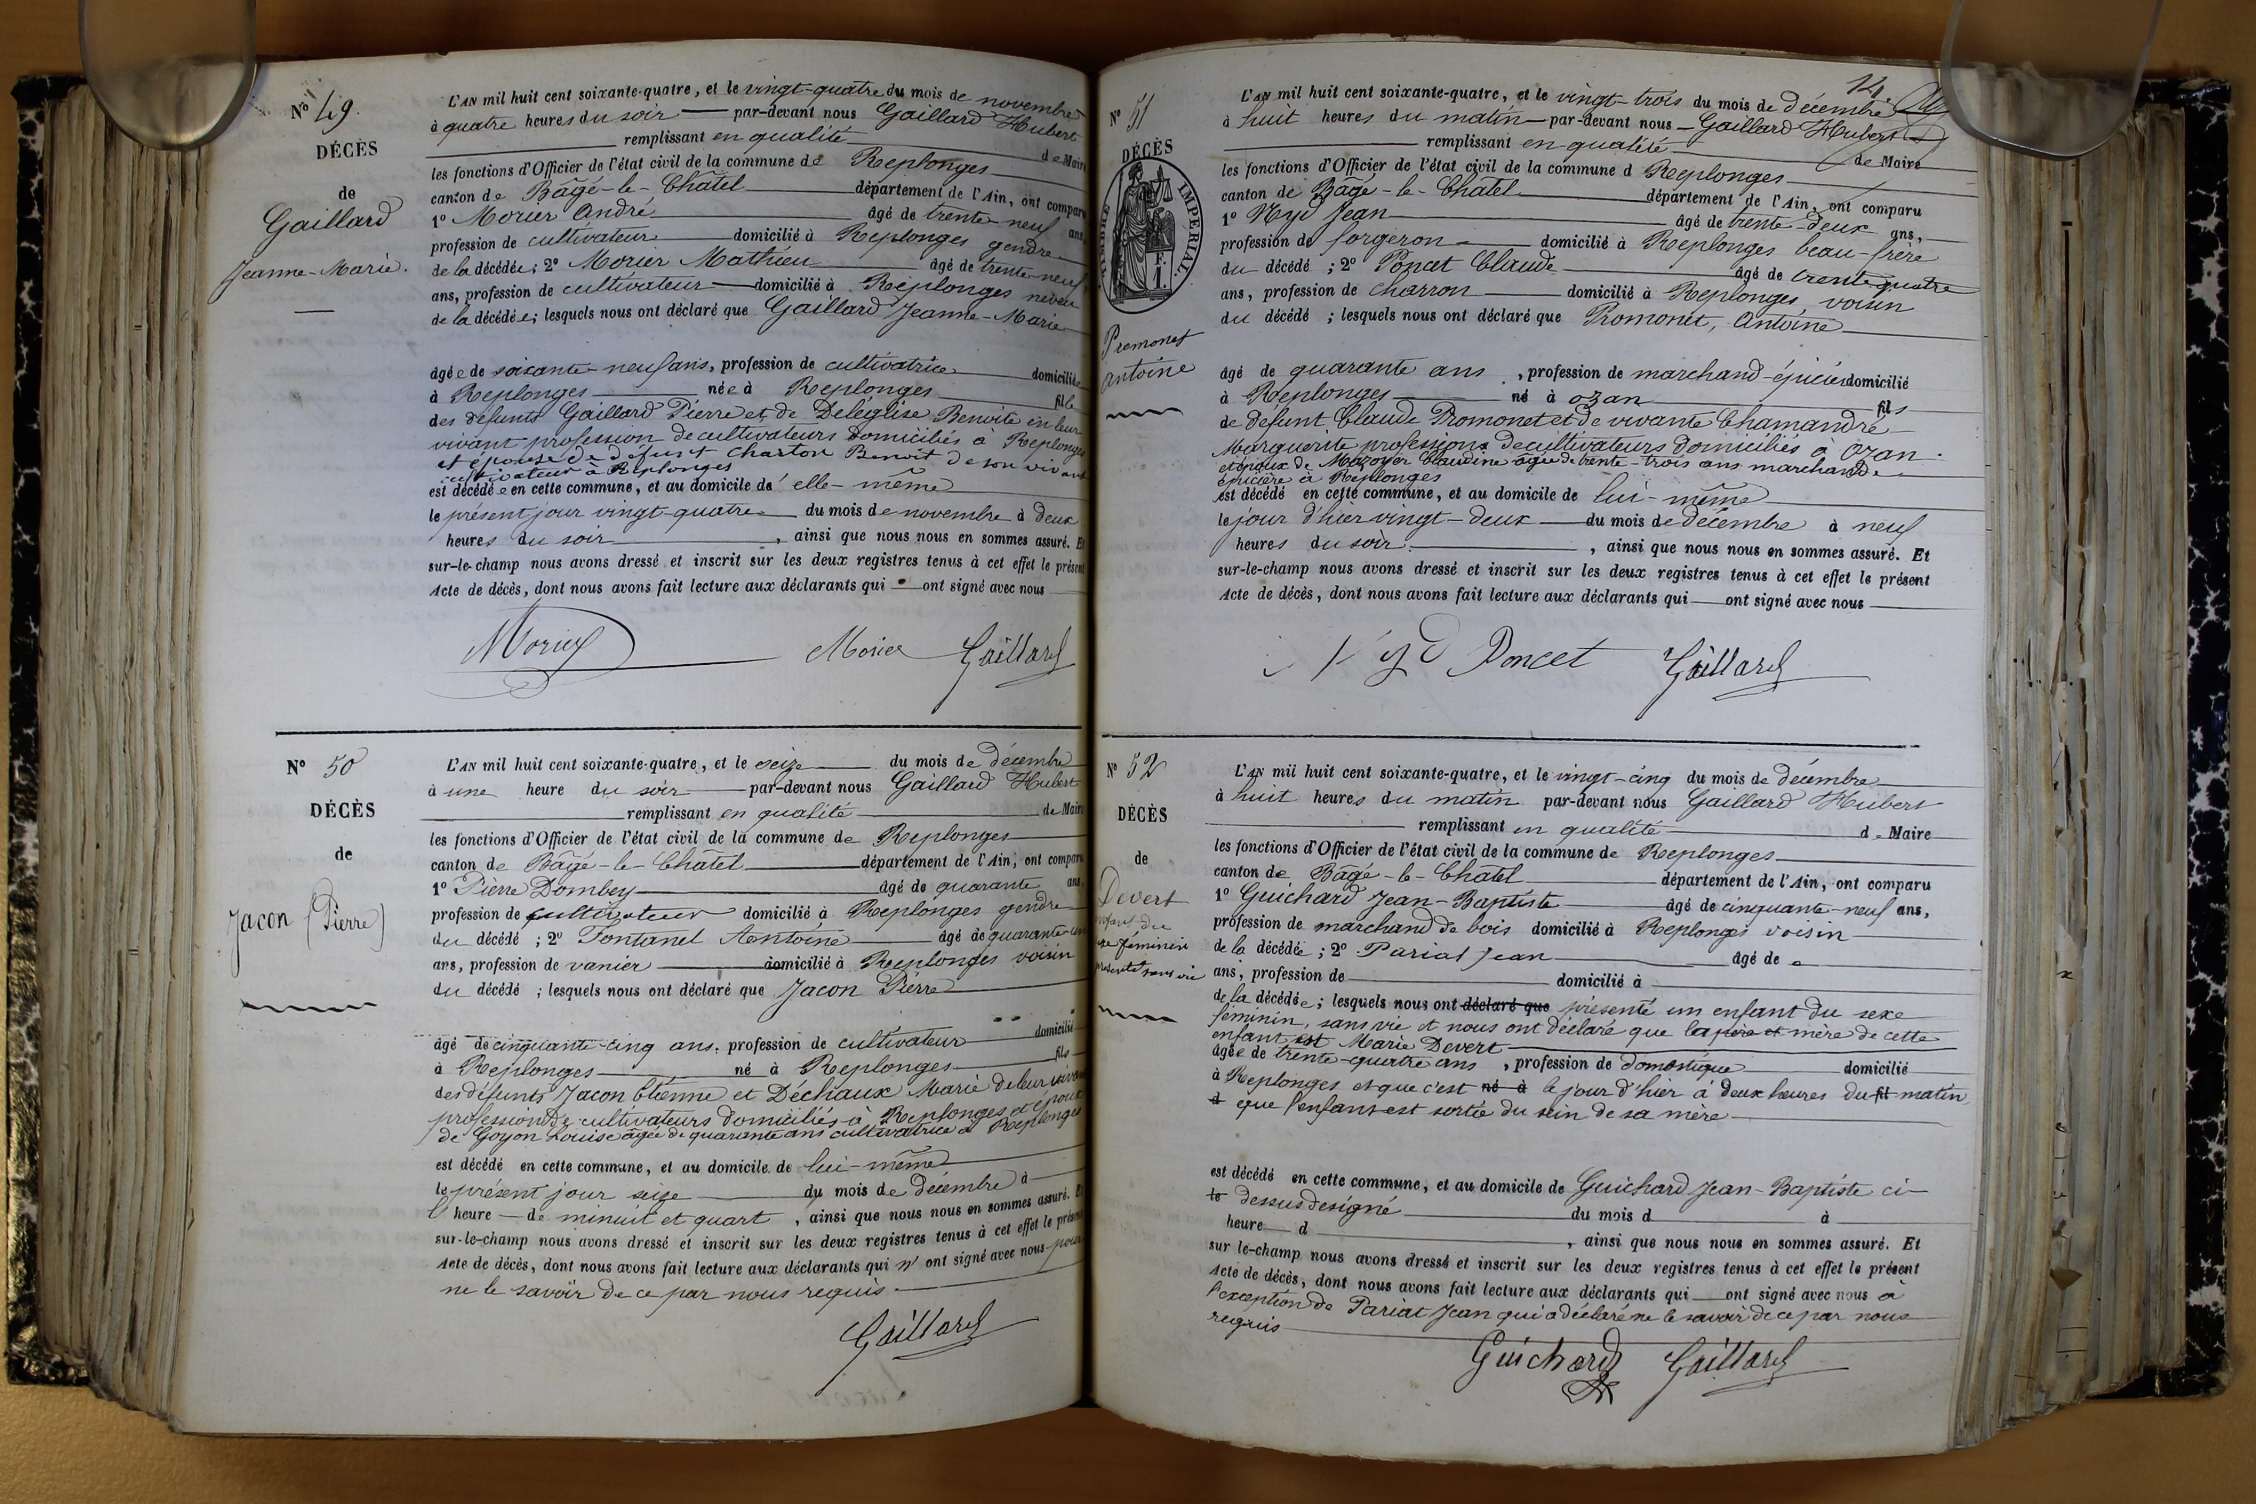 Nº 49.
DÉCÈS
de
Gaillard
Jeanne-Marie.
L'AN mil huit cent soixante-quatre, et le vingt-quatre du mois de novembre
à quatre heures du soir par-devant nous Gaillard Hubert
remplissant en qualité de Maire
les fonctions d'Officier de l'état civil de la commune de Replonges
canton de Bâgé-le-Châtel département de l'Ain, ont comparu
1º Morier André âgé de trente-neuf ans,
profession de cultivateur domicilié à Replonges gendre
de la décédée; 2º Morier Mathieu âgé de trente-neuf
ans, profession de cultivateur domicilié à Replonges neveu
de la décédée; lesquels nous ont déclaré que Gaillard Jeanne-Marie
âgée de soixante-neuf ans, profession de cultivatrice domiciliée
à Replonges née à Replonges fille
des défunts Gaillard Pierre et de Deléglise Benoite en leur
vivant profession de cultivateurs domiciliés à Replonges
et épouse de défunt Charton Benoit de son vivant
cultivateur à Replonges
est décédée en cette commune, et au domicile de elle-même
le présent jour vingt-quatre du mois de novembre à deux
heures du soir, ainsi que nous nous en sommes assuré. Et
sur-le-champ nous avons dressé et inscrit sur les deux registres tenus à cet effet le présent
Acte de décès, dont nous avons fait lecture aux déclarants qui ont signé avec nous
Morier Morier Gaillard
Nº 50
DÉCÈS
de
Jacon (Pierre)
L'AN mil huit cent soixante-quatre, et le seize du mois de décembre
à une heure du soir par-devant nous Gaillard Hubert
remplissant en qualité de Maire
les fonctions d'Officier de l'état civil de la commune de Replonges
canton de Bâgé-le-Châtel département de l'Ain, ont comparu
1º Pierre Dombey âgé de quarante ans
profession de cultivateur domicilié à Replonges gendre
du décédé; 2º Fontanel Antoine âgé de quarante-un
ans, profession de vanier domicilié à Replonges voisin
du décédé; lesquels nous ont déclaré que Jacon Pierre
âgé de cinquante-cinq ans, profession de cultivateur domicilié
à Replonges né à Replonges fils
des défunts Jacon Etienne et Déchaux Marie de leur vivant
profession de cultivateurs domiciliés à Replonges et époux
de Goyon Louise âgée de quarante ans cultivatrice à Replonges
est décédé en cette commune, et au domicile de lui-même
le présent jour seize du mois de décembre à
l'heure de minuit et quart, ainsi que nous nous en sommes assuré. Et
sur-le-champ nous avons dressé et inscrit sur les deux registres tenus à cet effet le présent
Acte de décès, dont nous avons fait lecture aux déclarants qui n'ont signé avec nous pour
ne le savoir de ce par nous requis
Gaillard
14
Nº 51
DÉCÈS
TIMBRE IMPÉRIAL
F.
1.
Promonet
Antoine
L'AN mil huit cent soixante-quatre, et le vingt-trois du mois de décembre
à huit heures du matin par-devant nous Gaillard Hubert
remplissant en qualité de Maire
les fonctions d'Officier de l'état civil de la commune d Replonges
canton de Bâgé-le-Châtel département de l'Ain, ont comparu
1º Nyd Jean âgé de trente-deux ans,
profession de forgeron domicilié à Replonges beau-frère
du décédé; 2º Poncet Claude âgé de trente quatre
ans, profession de charron domicilié à Replonges, voisin
du décédé; lesquels nous ont déclaré que Promonet, Antoine
âgé de quarante ans, profession de marchand-épicier domicilié
à Replonges né à Ozan fils
de défunt Claude Promonet et de vivante Chamandré
Marguerite professions de cultivateurs domiciliés à Ozan.
et époux de Mazoyer Claudine âgée de trente-trois ans marchande
épicière à Replonges
est décédé en cette commune, et au domicile de lui-même
le jour d'hier vingt-deux du mois de décembre à neuf
heures du soir, ainsi que nous nous en sommes assuré. Et
sur-le-champ nous avons dressé et inscrit sur les deux registres tenus à cet effet le présent
Acte de décès, dont nous avons fait lecture aux déclarants qui ont signé avec nous
Nyd Poncet Gaillard
Nº 52
DÉCÈS
de
Devert
enfant du
sexe féminin
présenté sans vie
L'AN mil huit cent soixante-quatre, et le vingt-cinq du mois de décembre
à huit heures du matin par-devant nous Gaillard Hubert
remplissant en qualité de Maire
les fonctions d'Officier de l'état civil de la commune de Replonges
canton de Bâgé-le-Châtel département de l'Ain, ont comparu
1º Guichard Jean-Baptiste âgé de cinquante-neuf ans,
profession de marchand de bois domicilié à Replonges voisin
de la décédée; 2º Pariat Jean âgé de
ans, profession de domicilié à
de la décédée; lesquels nous ont déclaré que présenté un enfant du sexe
féminin, sans vie et nous ont déclaré que la père et mère de cette
enfant est Marie Devert
âgée de trente-quatre ans, profession de domestique domicilié
à Replonges et que c'est né à le jour d'hier à deux heures du fil matin
d que l'enfant est sortie du sein de sa mère
est décédé en cette commune, et au domicile de Guichard Jean-Baptiste ci-
le dessus désigné du mois d à
heure d, ainsi que nous nous en sommes assuré. Et
sur le-champ nous avons dressé et inscrit sur les deux registres tenus à cet effet le présent
Acte de décès, dont nous avons fait lecture aux déclarants qui ont signé avec nous à
l'exception de Pariat Jean qui a déclaré ne le savoir de ce par nous
requis
Guichard Gaillard